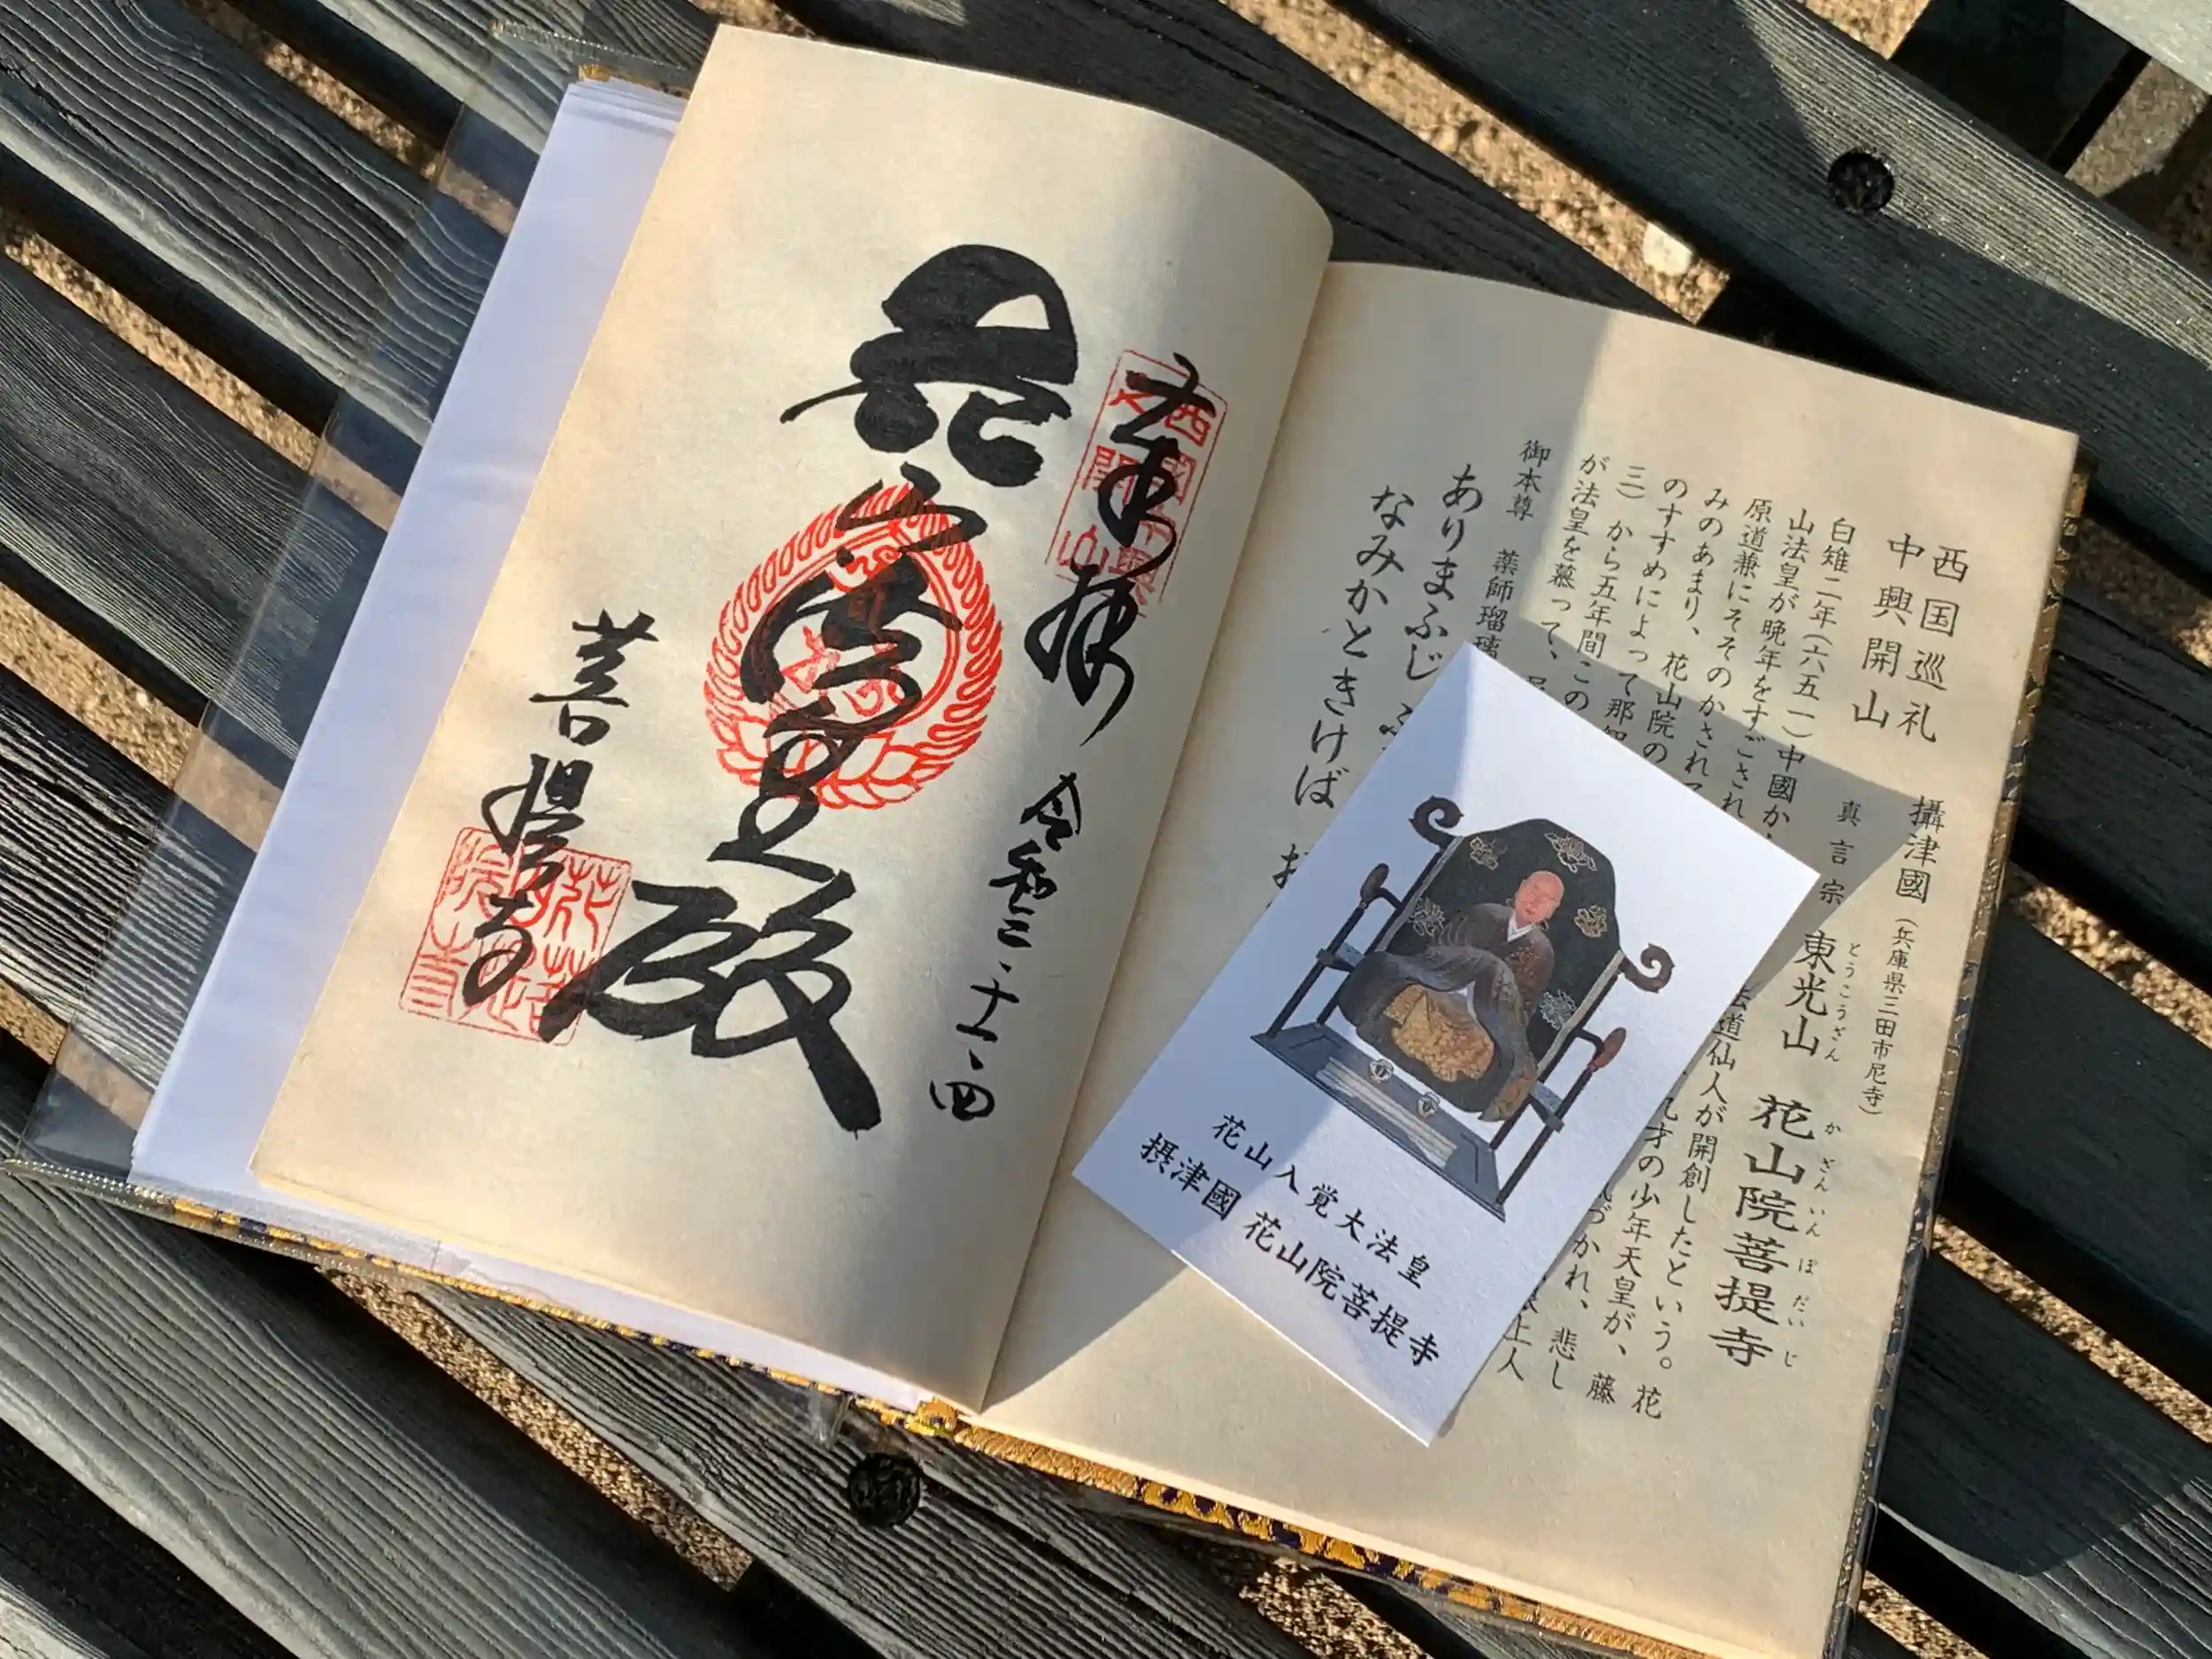 西国巡礼
中興開山
攝津國(兵庫県三田市尼寺)
真言宗 東光山 花山院菩提寺
とうこうざん かざんいんぼだいじ
白雉二年(六五一)中國か 法道仙人が開創したという。花
山法皇が晩年をすごされ 才の少年天皇が、藤
原道兼にそそのかされて づかれ、悲し
みのあまり、花山院の 上人
のすすめによって那智
三)から五年間この
が法皇を慕って、
御本尊 薬師瑠璃
ありまふじ
なみかときけば
花山入覚大法皇
摂津國 花山院菩提寺
奉拝 令和三・十一・四
西國中興
之開山
花山法皇殿
菩提寺